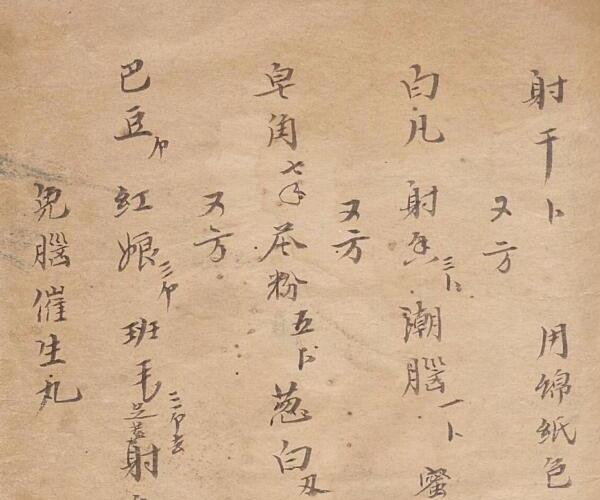 射干卜 用綿紙色
又方
白凡 射香三卜 潮腦一卜 蜜
又方
皂角七 粉五卜 葱白
又方
巴豆 紅娘三 班毛三 去足 射
兔腦催生丸